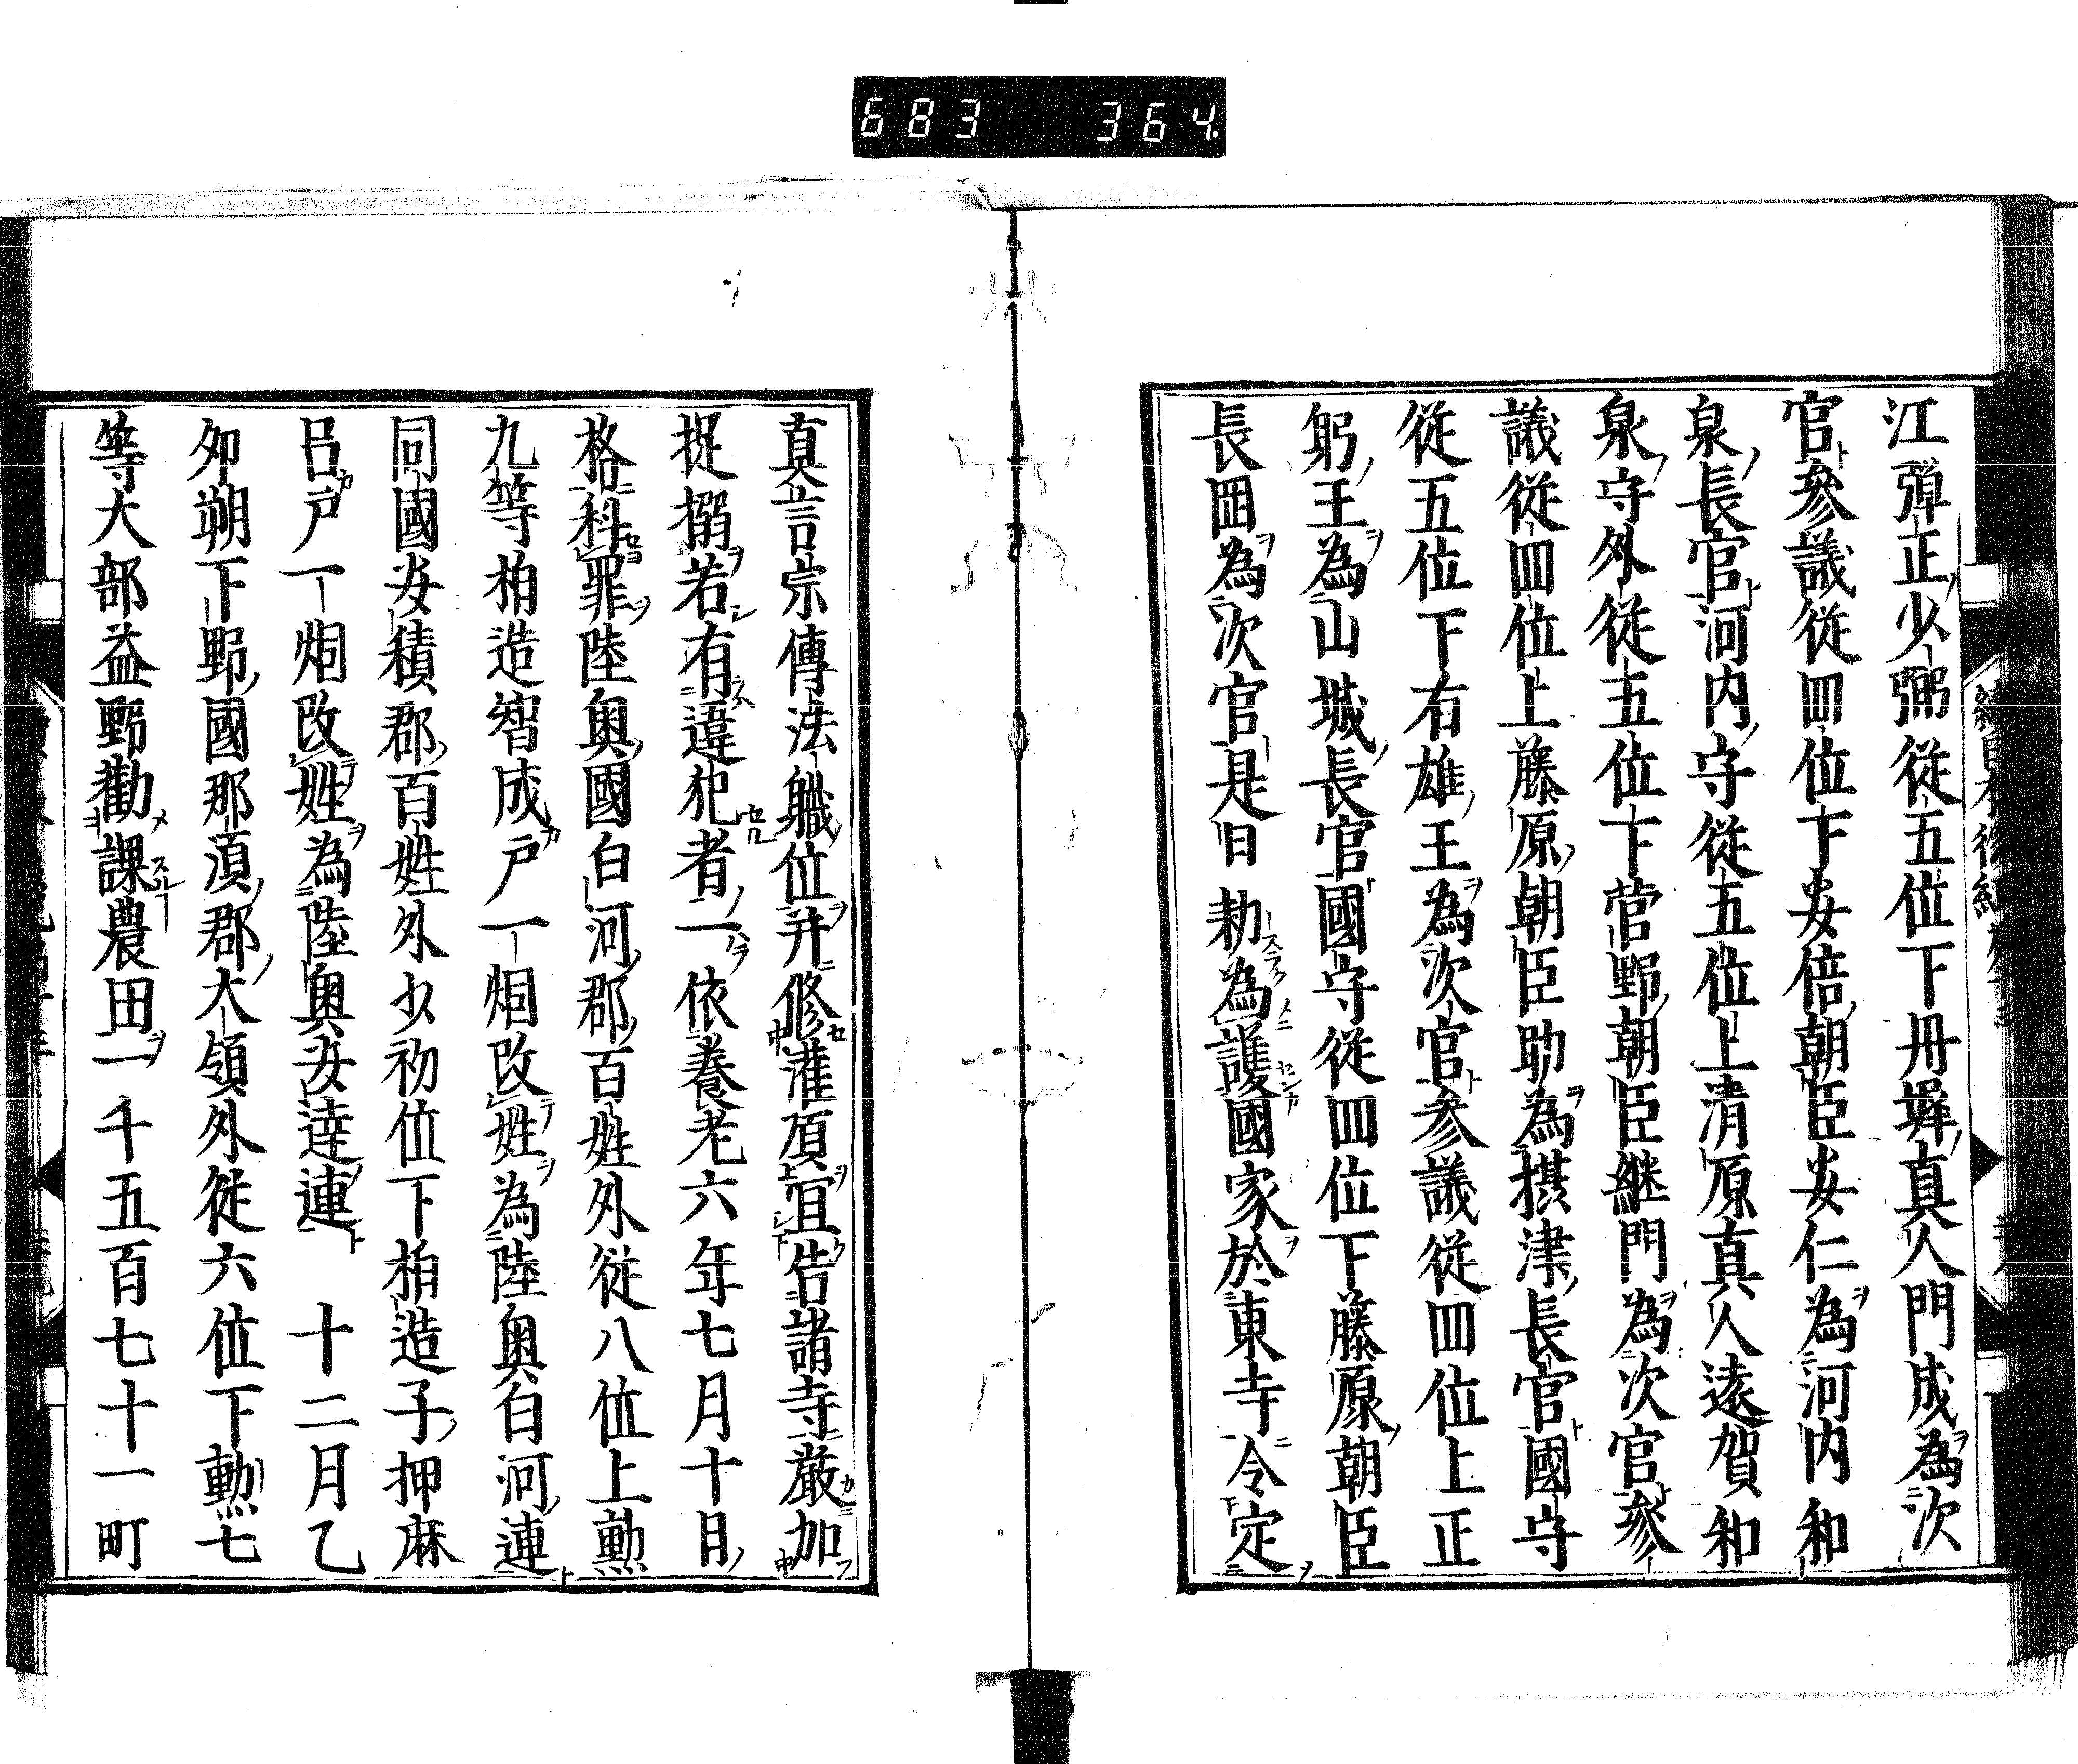 683 364
江彈正少弼從五位下丹墀真人門成為次
官參議從四位下安倍朝臣安仁為河内和
泉長官河内守從五位上清原真人遠賀和
泉守外從五位下菅野朝臣継門為次官參
議從四位上藤原朝臣助為摂津長官國守
從五位下右雄王為次官参議從四位上正
躬王為山城長官國守從四位下藤原朝臣
長岡為次官是日勅為護國家於東寺令定
真言宗傳法職位并修灌頂宜告諸寺嚴加
捉搦若有違犯者一依養老六年七月十日
格科罪陸奥國白河郡百姓外從八位上勲
九等柏造智成戸一烟改姓為陸奥白河連
同國安積郡百姓外少初位下柏造子押麻
呂戸一烟改姓為陸奥安達連 十二月乙
夘朔下野國那湏郡大領外從六位下勲七
等大部益野勸課農田一千五百七十一町